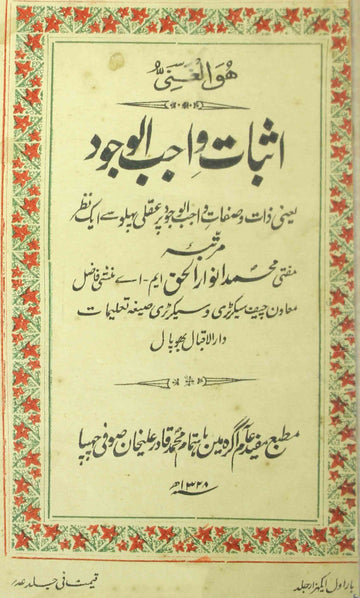 ھو الغنی
اثبات واجب الوجود
یعنی ذات وصفات واجب الوجود پر عقلی پہلو سے ایک نظر
مرتبہ
مفتی محمد انوار الحق ایم-اے منشی فاضل
معاون چیف سیکرٹری وسیکرٹری صیغہ تعلیمات
دارالاقبال بھوپال
مطبع مفید عام آگرہ مین باہتمام محمد قادر علیخان صوفی چھپا
۱۳۲۸ھ
بار اول ایکہزار جلد
قیمت فی جلد